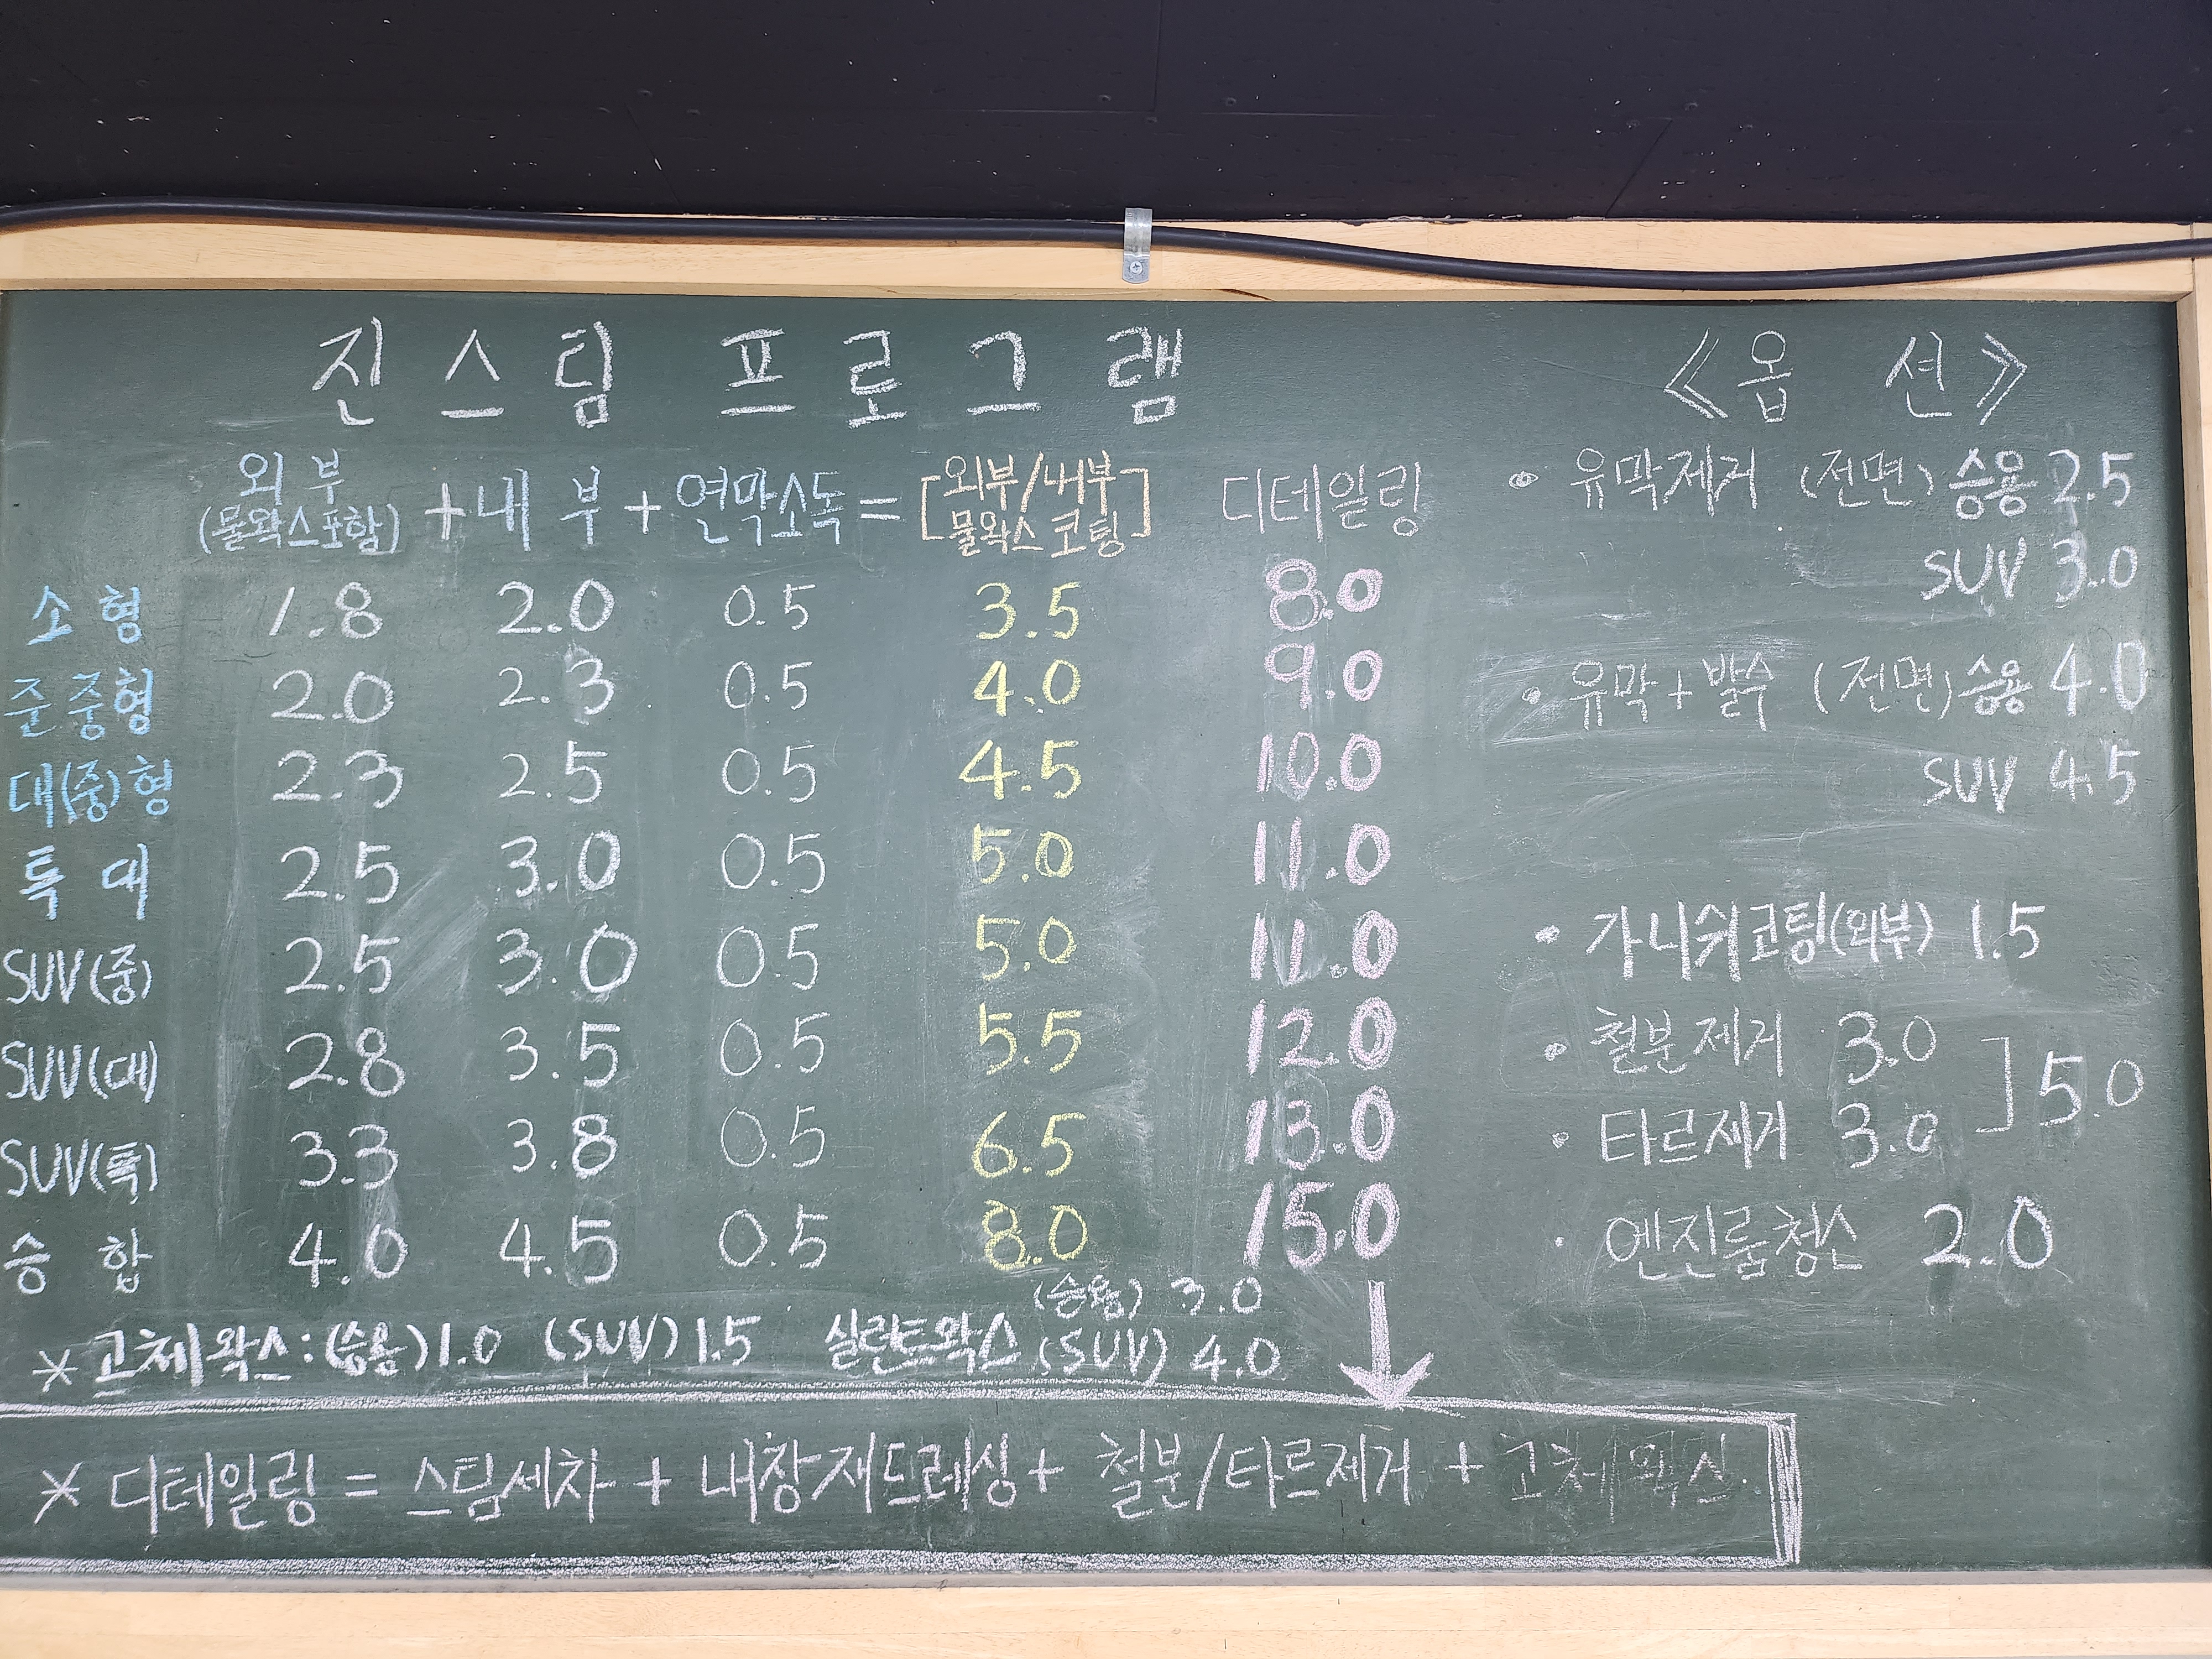 진스팀 프로그램
외부 (물왁스포함) + 내부 + 연막소독 = [외부/내부 물왁스 코팅] 디테일링
소형 1.8 2.0 0.5 3.5 8.0
준중형 2.0 2.3 0.5 4.0 9.0
대(중)형 2.3 2.5 0.5 4.5 10.0
특대 2.5 3.0 0.5 5.0 11.0
SUV(중) 2.5 3.0 0.5 5.0 11.0
SUV(대) 2.8 3.5 0.5 5.5 12.0
SUV(특) 3.3 3.8 0.5 6.5 13.0
승합 4.0 4.5 0.5 8.0 15.0
* 고체왁스: (승용) 1.0 (SUV) 1.5 실란트왁스 (승용) 3.0
(SUV) 4.0
* 디테일링 = 스팀세차 + 내장재드레싱 + 철분/타르제거 + 고체왁스.
《옵션》
• 유막제거 (전면) 승용 2.5
SUV 3.0
• 유막+발수 (전면) 승용 4.0
SUV 4.5
• 가니쉬코팅(외부) 1.5
• 철분제거 3.0
• 타르제거 3.0 ] 5.0
• 엔진룸청소 2.0